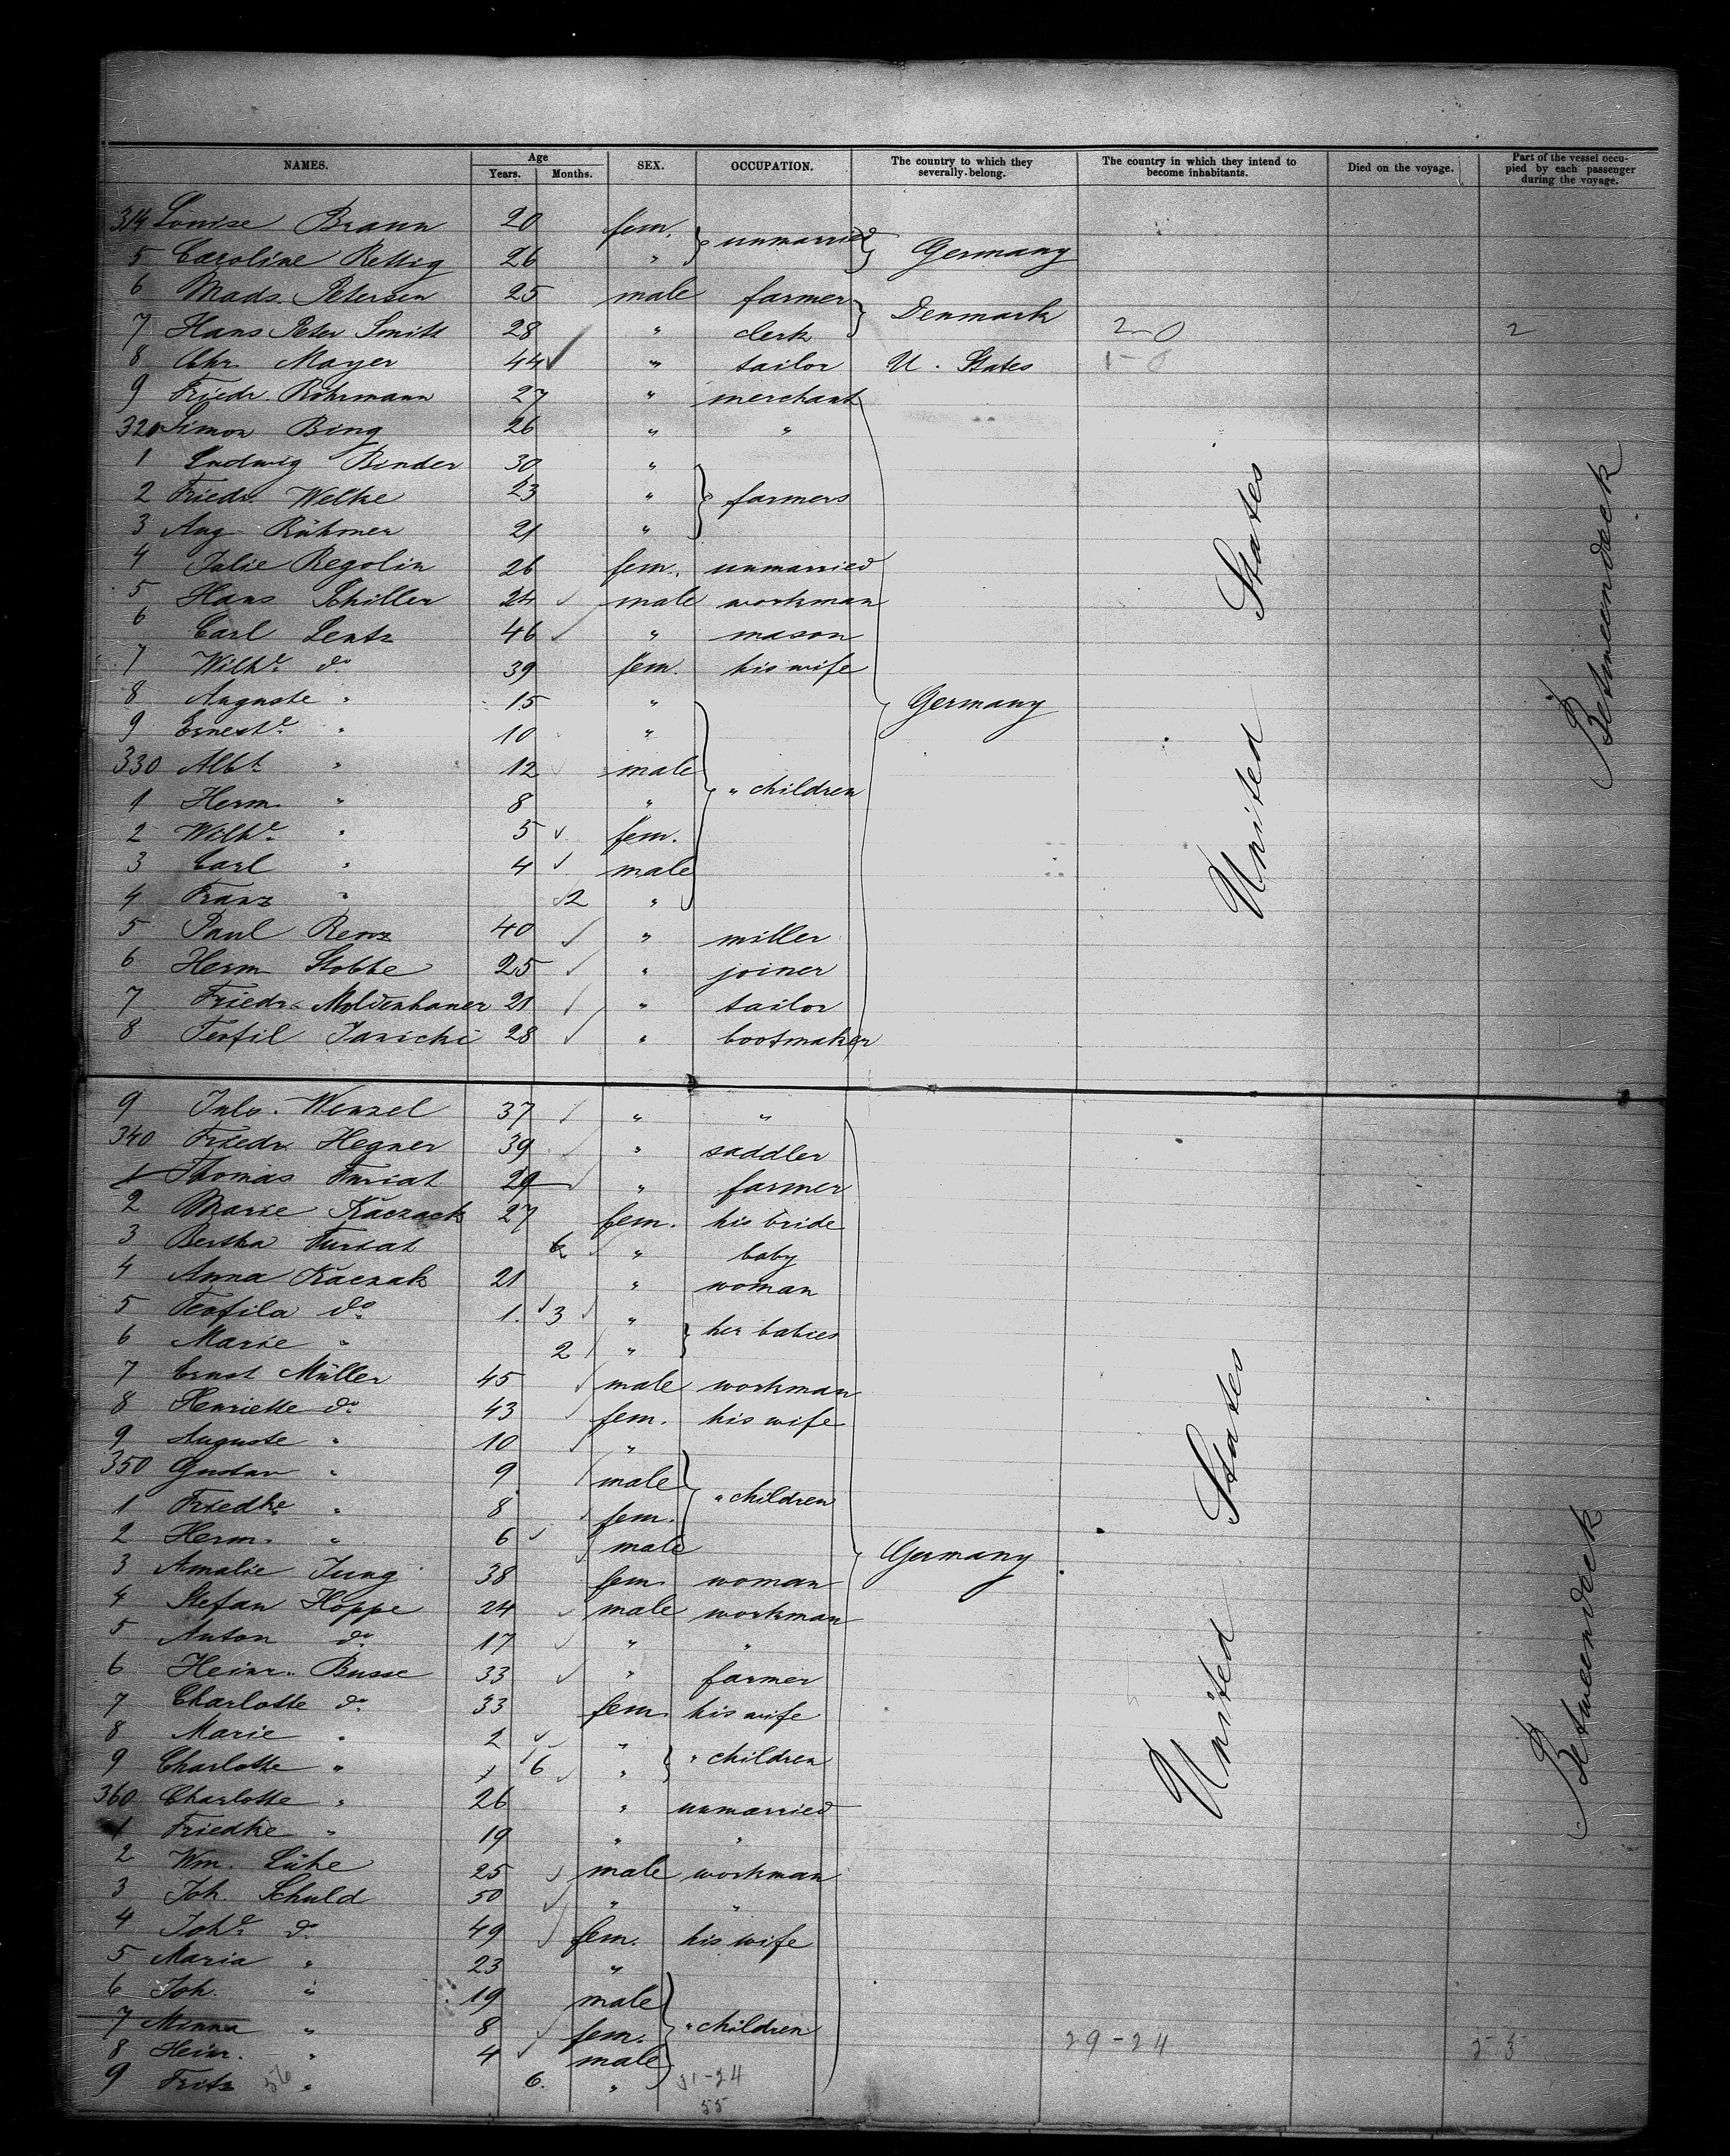 NAMES. Age Years. Months. SEX. OCCUPATION. The country to which they severally belong. The country in which they intend to become inhabitants. Died on the voyage. Part of the vessel occupied by each passenger during the voyage.
314 Louise Braun 20 fem. } unmarried } Germany
5 Caroline Rettig 26 "
6 Mads. Petersen 25 male farmer } Denmark
7 Hans Peter Smitt 28 " clerk 2-0 2
8 Chr. Mayer 44 " tailor U. States 1-0
9 Friedr. Röhrmann 27 " merchant
320 Simon Bing 26 " "
1 Ludwig Binder 30 "
2 Friedr. Welke 23 " } farmers
3 Aug. Rühmer 21 "
4 Julie Regolin 26 fem. unmarried
5 Hans Schiller 24 male workman
6 Carl Lentz 46 " mason
7 Wilhe. do 39 fem. his wife
8 Auguste " 15 " Germany
9 Erneste. " 10 "
330 Albt. " 12 male
1 Herm. " 8 " " children
2 Wilhe. " 5 fem.
3 Carl " 4 male
4 Franz " 2 "
5 Paul Renz 40 " miller
6 Herm. Stobbe 25 " joiner
7 Friedr. Moldenhauer 21 " tailor
8 Teofil Jaricki 28 " bootmaker
United States
Betweendeck
9 Juls. Wenzel 37 " "
340 Friedr. Hegner 39 " saddler
1 Thomas Furiat 29 " farmer
2 Marie Kaczack 27 fem. his bride
3 Bertha Furiat 6 " baby
4 Anna Kaczak 21 " woman
5 Teofila do 1. 3 " } her babies
6 Marie " 2 "
7 Ernst Müller 45 male workman
8 Henriette do 43 fem. his wife
9 Auguste " 10 "
350 Gustav " 9 male } " children
1 Friedke " 8 fem.
2 Herm. " 6 male
3 Amalie Jung 38 fem. woman Germany
4 Stefan Hoppe 24 male workman
5 Anton do 17 " "
6 Heinr. Busse 33 " farmer
7 Charlotte do 33 fem. his wife
8 Marie " 2 "
9 Charlotte " 1 6 " } " children
360 Charlotte " 26 " unmarried
1 Friedke " 19 " "
2 Wm. Lühe 25 male workman
3 Joh. Schuld 50 " "
4 Johe. do 49 fem. his wife
5 Maria " 23 "
6 Joh. " 19 male
7 Minna " 8 fem. } " children 29-24 25
8 Heinr. " 4 male
9 Fritz 56 " 6. " 31-24
55
United States
Betweendeck